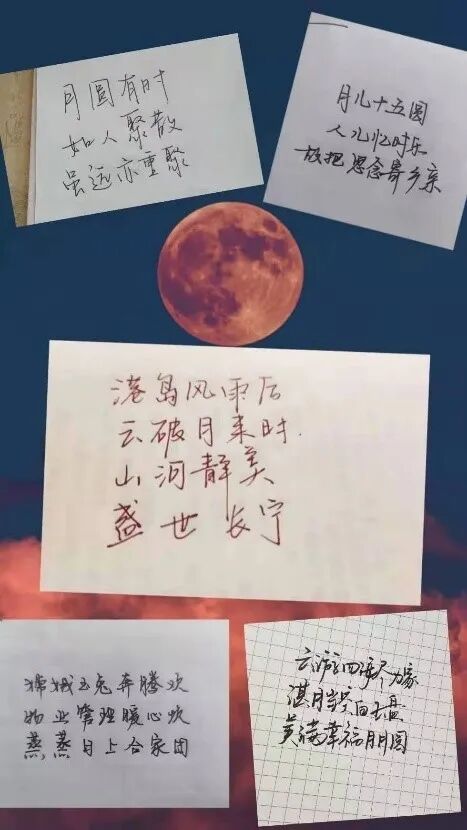 月圆有时
如人聚散
虽远亦重聚
月儿十五圆
人儿忆时乐
故把思念寄乡亲
港岛风雨后
云破月来时.
山河静美
盛世长宁
嫦娥玉兔奔腾欢
物业管理暖心坎
蒸蒸日上合家团
云游四海尽为家
湛月当空白玉盘
美满幸福月月圆